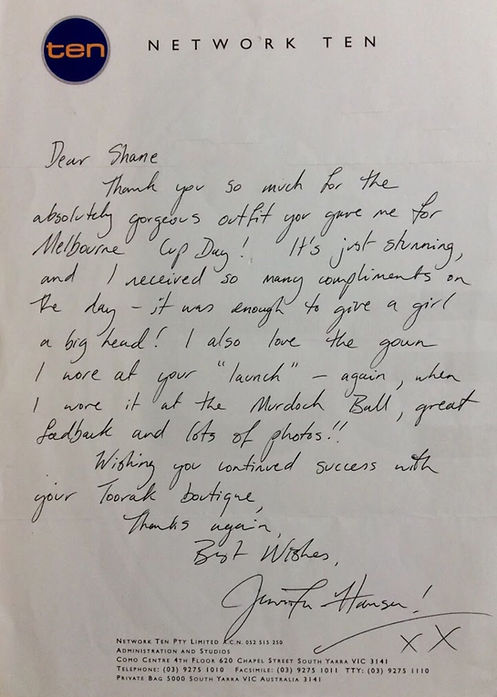 ten
NETWORK TEN
Dear Shane
Thank you so much for the
absolutely gorgeous outfit you gave me for
Melbourne Cup Day! It's just stunning,
and I received so many compliments on
the day – it was enough to give a girl
a big head! I also love the gown
I wore at your "launch" – again, when
I wore it at the Murdoch Ball, great
feedback and lots of photos!!
Wishing you continued success with
your Toorak boutique,
Thanks again,
Best Wishes,
Jennifer Hansen!
XX
NETWORK TEN PTY LIMITED A.C.N. 052 515 250
ADMINISTRATION AND STUDIOS
COMO CENTRE 4TH FLOOR 620 CHAPEL STREET SOUTH YARRA VIC 3141
TELEPHONE: (03) 9275 1010 FACSIMILE: (03) 9275 1011 TTY: (03) 9275 1110
PRIVATE BAG 5000 SOUTH YARRA VIC AUSTRALIA 3141